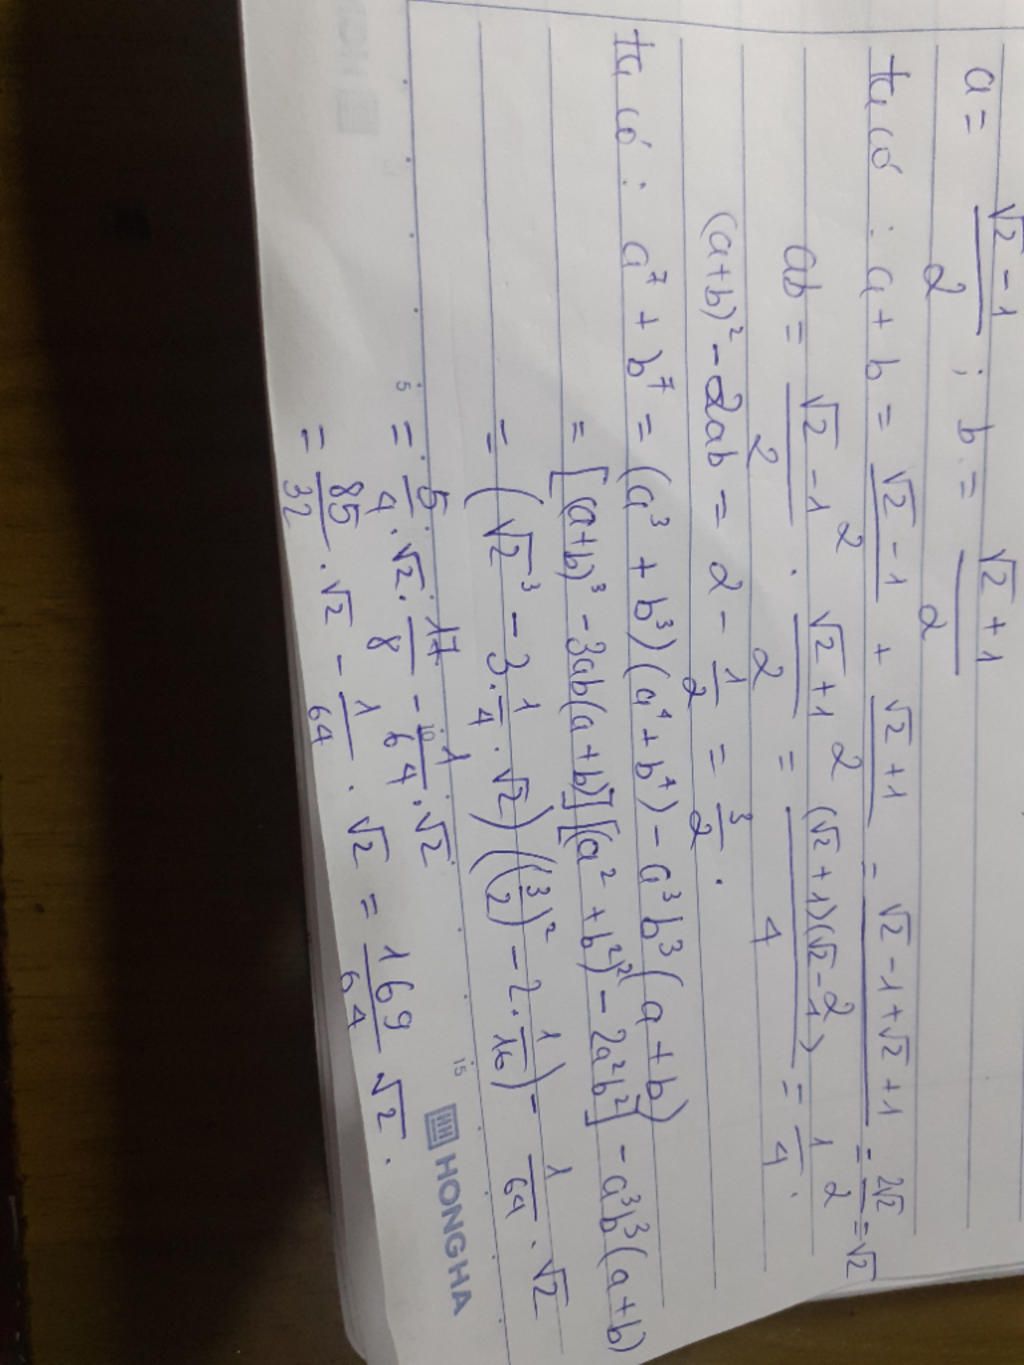 a = (√2 - 1)/2 ; b = (√2 + 1)/2
ta có : a + b = (√2 - 1)/2 + (√2 + 1)/2 = (√2 - 1 + √2 + 1)/2 = 2√2/2 = √2
ab = (√2 - 1)/2 . (√2 + 1)/2 = (√2 + 1)(√2 - 1)/4 = 1/4 .
(a+b)² - 2ab = 2 - 1/2 = 3/2 .
ta có : a⁷ + b⁷ = (a³ + b³)(a⁴ + b⁴) - a³b³(a + b)
= [(a+b)³ - 3ab(a+b)][(a² + b²)² - 2a²b²] - a³b³(a+b)
= (√2³ - 3.1/4 . √2)((3/2)² - 2.1/16) - 1/64 . √2
= 5/4 . √2 . 17/8 - 1/64 . √2
= 85/32 . √2 - 1/64 . √2 = 169/64 √2 .
5
15
HONG HA